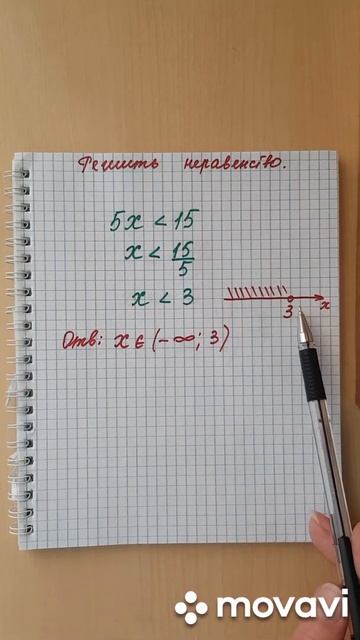 Решить неравенство.
5x < 15
x < 15/5
x < 3
3 x
Отв: x ∈ (-∞; 3)
movavi